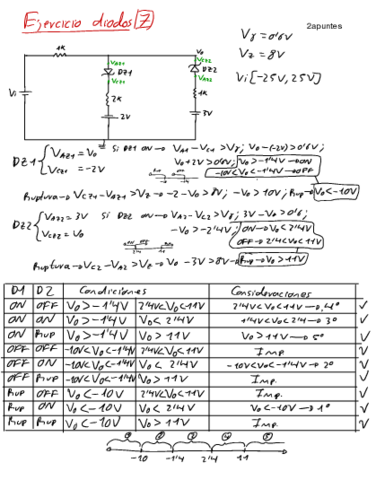 Ejercicio diodos 7
2apuntes
Vγ = 0'6V
Vz = 8V
Vi [-25V, 25V]
1K
Vo
VAZ1
VCZ2
DZ1
DZ2
VCZ1
VAZ2
Vi
2K
1K
2V
3V
DZ1 { VAZ1 = Vo
VCZ1 = -2V
Si DZ1 ON → VA1 - VC1 > Vγ; Vo-(-2V) > 0'6V;
Vo+2V > 0'6V; Vo > -1'4V → ON
-10V < Vo < -1'4V → OFF
Ruptura → VCZ1 - VAZ1 > Vz → -2 - Vo > 8V; -Vo > 10V; Rup → Vo < -10V
DZ2 { VAZ2 = 3V
VCZ2 = Vo
Si DZ2 ON → VA2 - VC2 > Vγ; 3V - Vo > 0'6;
-Vo > -2'4V; ON → Vo < 2'4V
OFF → 2'4V < Vo < 11V
Ruptura → VC2 - VA2 > Vz → Vo - 3V > 8V → Rup → Vo > 11V
D1 D2 Condiciones Consideraciones
ON OFF Vo > -1'4V 2'4V < Vo < 11V 2'4V < Vo < 11V → 4º ✓
ON ON Vo > -1'4V Vo < 2'4V -1'4V < Vo < 2'4 → 3º ✓
ON Rup Vo > -1'4V Vo > 11V Vo > 11V → 5º ✓
OFF OFF -10V < Vo < -1'4V 2'4V < Vo < 11V Imp ✓
OFF ON -10V < Vo < -1'4V Vo < 2'4V -10V < Vo < -1'4V → 2º ✓
OFF Rup -10V < Vo < -1'4V Vo > 11V Imp. ✓
Rup OFF Vo < -10V 2'4V < Vo < 11V Imp. ✓
Rup ON Vo < -10V Vo < 2'4V Vo < -10V → 1º ✓
Rup Rup Vo < -10V Vo > 11V Imp. ✓
-10 -1'4 2'4 11